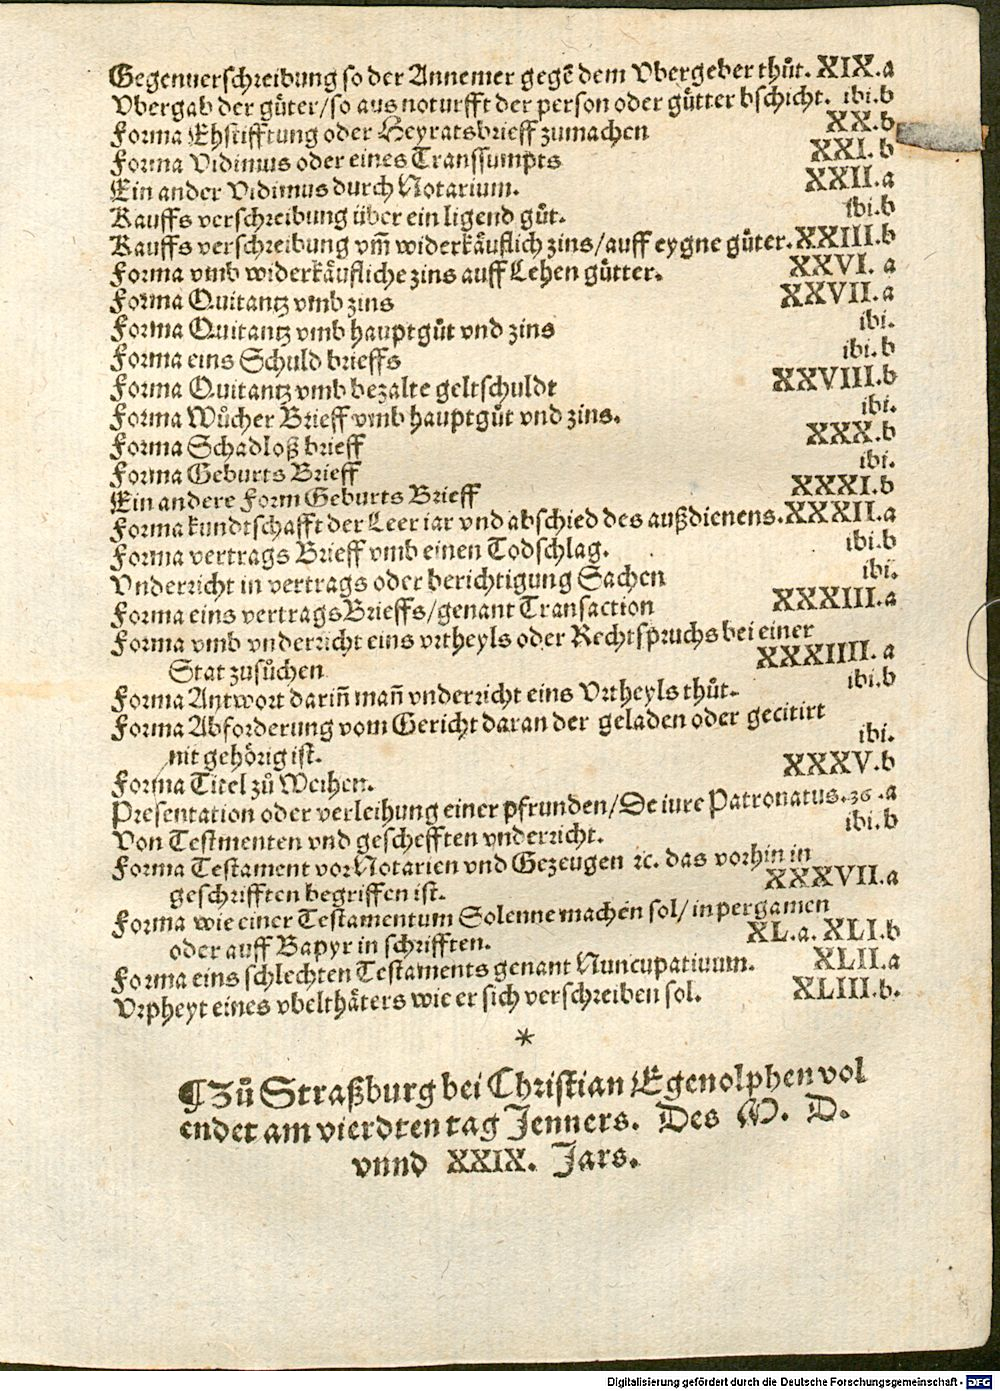 Gegenuerschreibung so der Annemer gegē dem Vbergeber thůt. XIX.a
Vbergab der gůter/so aus noturfft der person oder gůtter bschicht. ibi.b
Forma Ehstifftung oder Heyratsbrieff zumachen XX.b
Forma Vidimus oder eines Transsumpts XXI.b
Ein ander Vidimus durch Notarium. XXII.a
Kauffs verschreibung über ein ligend gůt. ibi.b
Kauffs verschreibung vm̄ widerkäuflich zins/auff eygne gůter. XXIII.b
Forma vmb widerkäufliche zins auff Lehen gůtter. XXVI. a
Forma Quitantz vmb zins XXVII.a
Forma Quitantz vmb hauptgůt vnd zins ibi.
Forma eins Schuld brieffs ibi.b
Forma Quitantz vmb bezalte geltschuldt XXVIII.b
Forma Wůcher Brieff vmb hauptgůt vnd zins. ibi.
Forma Schadloß brieff XXX.b
Forma Geburts Brieff ibi.
Ein andere Form Geburts Brieff XXXI.b
Forma kundtschafft der Leer iar vnd abschied des außdienens. XXXII.a
Forma vertrags Brieff vmb einen Todschlag. ibi.b
Vnderricht in vertrags oder berichtigung Sachen ibi.
Forma eins vertrags Brieffs/genant Transaction XXXIII.a
Forma vmb vnderricht eins vrtheyls oder Rechtspruchs bei einer
Stat zusůchen XXXIIII. a
Forma Antwort dariñ mañ vnderricht eins Vrtheyls thůt. ibi.b
Forma Abforderung vom Gericht daran der geladen oder gecitirt
nit gehörig ist. ibi.
Forma Titel zů Weihen. XXXV.b
Presentation oder verleihung einer pfrunden/De iure Patronatus. 36 .a
Von Testmenten vnd geschefften vnderricht. ibi.b
Forma Testament vor Notarien vnd Gezeugen ꝛc. das vorhin in
geschrifften begriffen ist. XXXVII.a
Forma wie einer Testamentum Solenne machen sol/ in pergamen
oder auff Bapyr in schrifften. XL.a. XLI.b
Forma eins schlechten Testaments genant Nuncupatiuum. XLII.a
Vrpheyt eines vbelthäters wie er sich verschreiben sol. XLIII.b.
*
¶Zů Straßburg bei Christian Egenolphen vol
endet am vierdten tag Jenners. Des M. D.
vnnd XXIX. Jars.
Digitalisierung gefördert durch die Deutsche Forschungsgemeinschaft - DFG